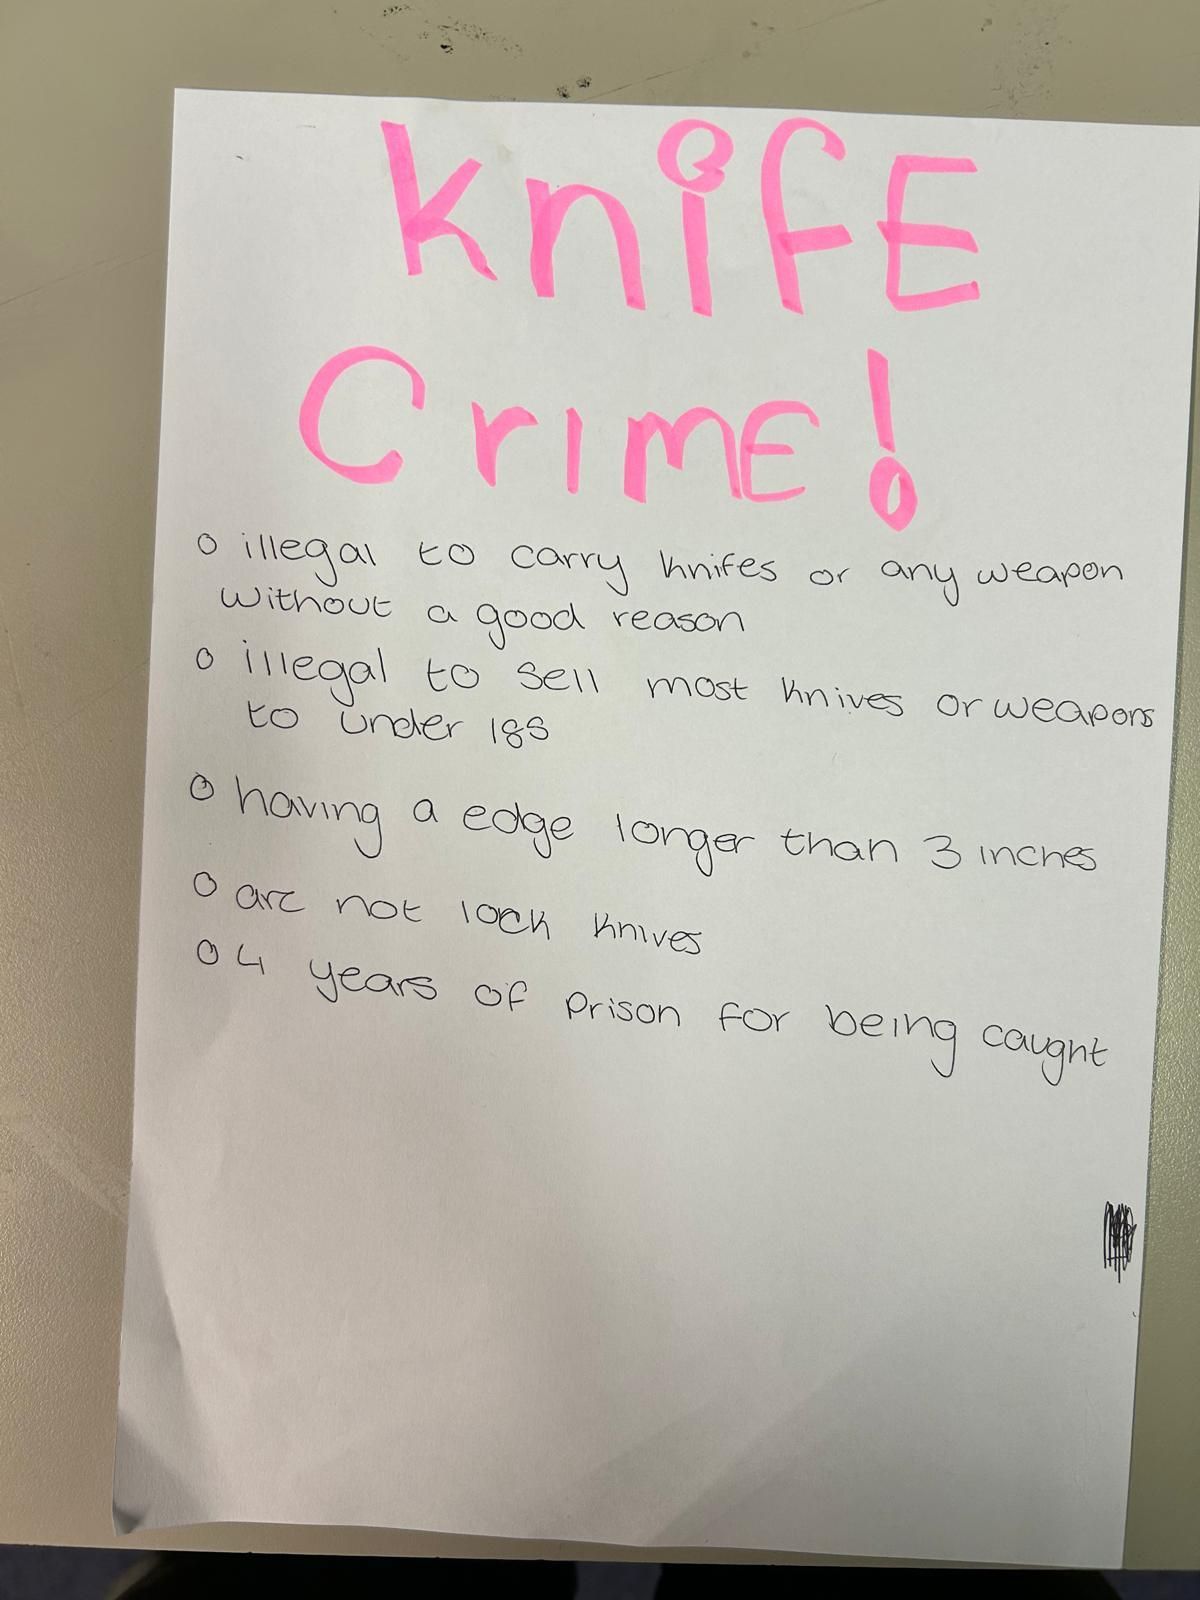 KnifE
CrIME!
o illegal to carry knifes or any weapon
without a good reason
o illegal to sell most knives or weapons
to under 18s
o having a edge longer than 3 inches
o are not lock knives
o 4 years of prison for being caught